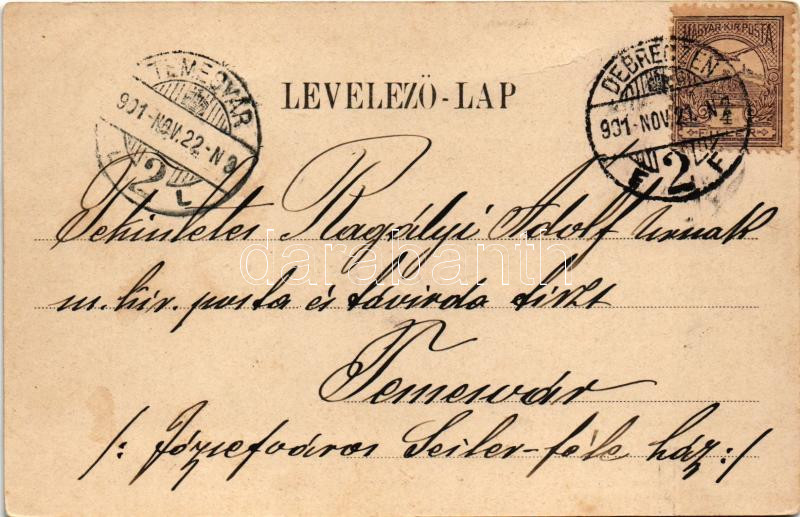 MAGYAR·KIR·POSTA
FILLÉR
DEBRECZEN
901-NOV.21.N4
2
E F
TEMESVÁR
901-NOV.22-N8
2
L
LEVELEZŐ-LAP
Tekintetes Ragályi Adolf urnak
m. kir. posta és távirda tiszt
Temesvár
/: Józsefváros Seiler-féle ház :/
darabanth